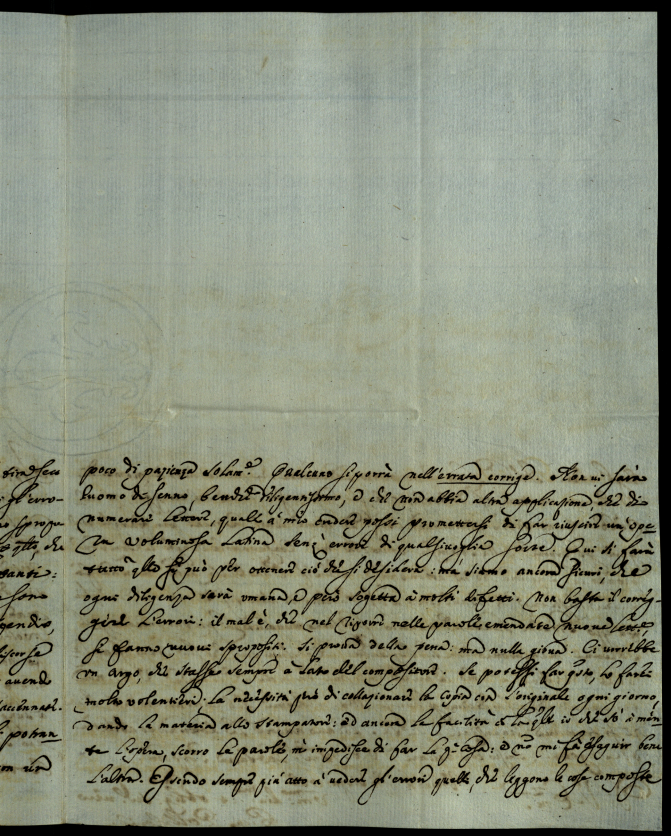 poco di pazienza solam.e Qualcuno si porrà nell'errata corrige. Non ui sarà
huomo di senno, benche diligentissimo, e che non abbia altra applicazione, che di
numerare lettere, quale à mio credere possi promettersi di far riuscire un'ope
ra voluminosa Latina senz'errore di qualsiuoglia sorte. Qui si farà
tutto q.llo si può per ottenere ciò che si desidera: mà siamo ancora sicuri, che
ogni diligenza sarà umana, e però sogetta à molti difetti. Non basta il correg-
gere l'errori: il male è, che nel rigore nelle parole emendate, nuoue lett.e
si fanno nuoui spropositi. Si proua della pena: mà nulla gioua. Ci vorrebbe
un argo, che stasse sempre à lato del compositore. Se potessi far q.sto, lo farei
molto volentieri. La necessità però di collazionare la copia con l'originale ogni giorno,
dando la materia allo stampatore: ed ancora la facilità con la q.le io che sò à men-
te l'opera, scorro le parole, m'impedisce di far la p.a cosa: e no mi fà eseguir bene
l'altra. Essendo sempre più atto à uedere gl'errori quelli, che leggono le cose composte
tirasseco
gl'erro-
spropo
q.llo, che
auanti:
sono
pendio,
scorsa
auendo
potran
un